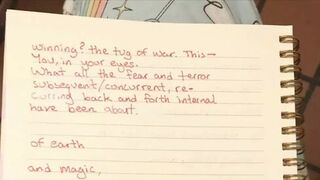 winning? the tug of war. This—
You, in your eyes.
What all the fear and terror
subsequent/concurrent, re-
curring back and forth internal
have been about.
of earth
and magic,